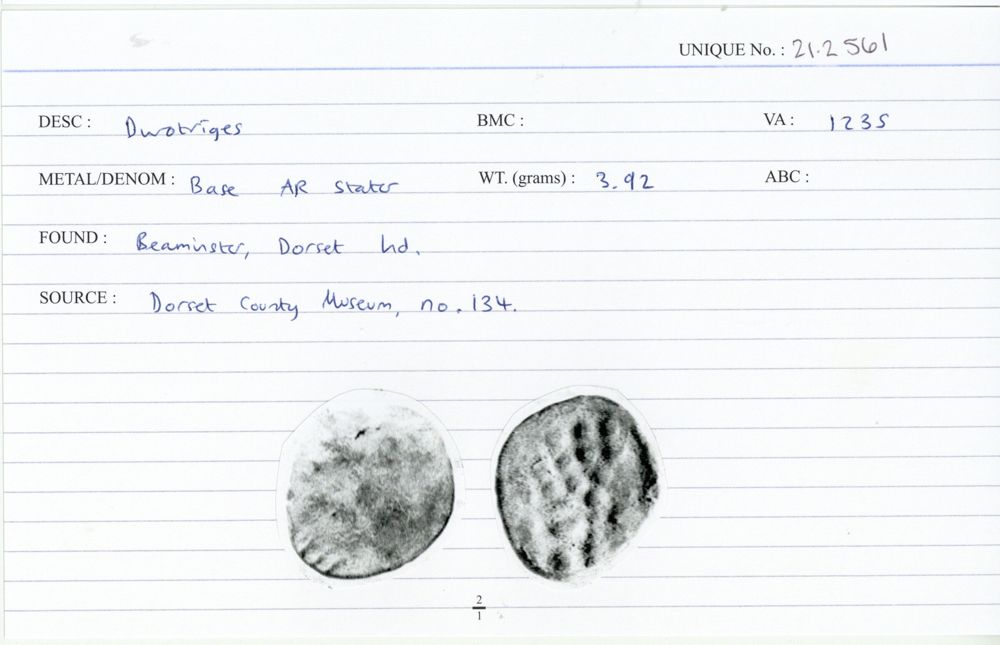 UNIQUE No. : 21.2561
DESC : Durotriges BMC : VA : 1235
METAL/DENOM : Base AR Stater WT. (grams) : 3.92 ABC :
FOUND : Beaminster, Dorset hd.
SOURCE : Dorset County Museum, no. 134.
2
1